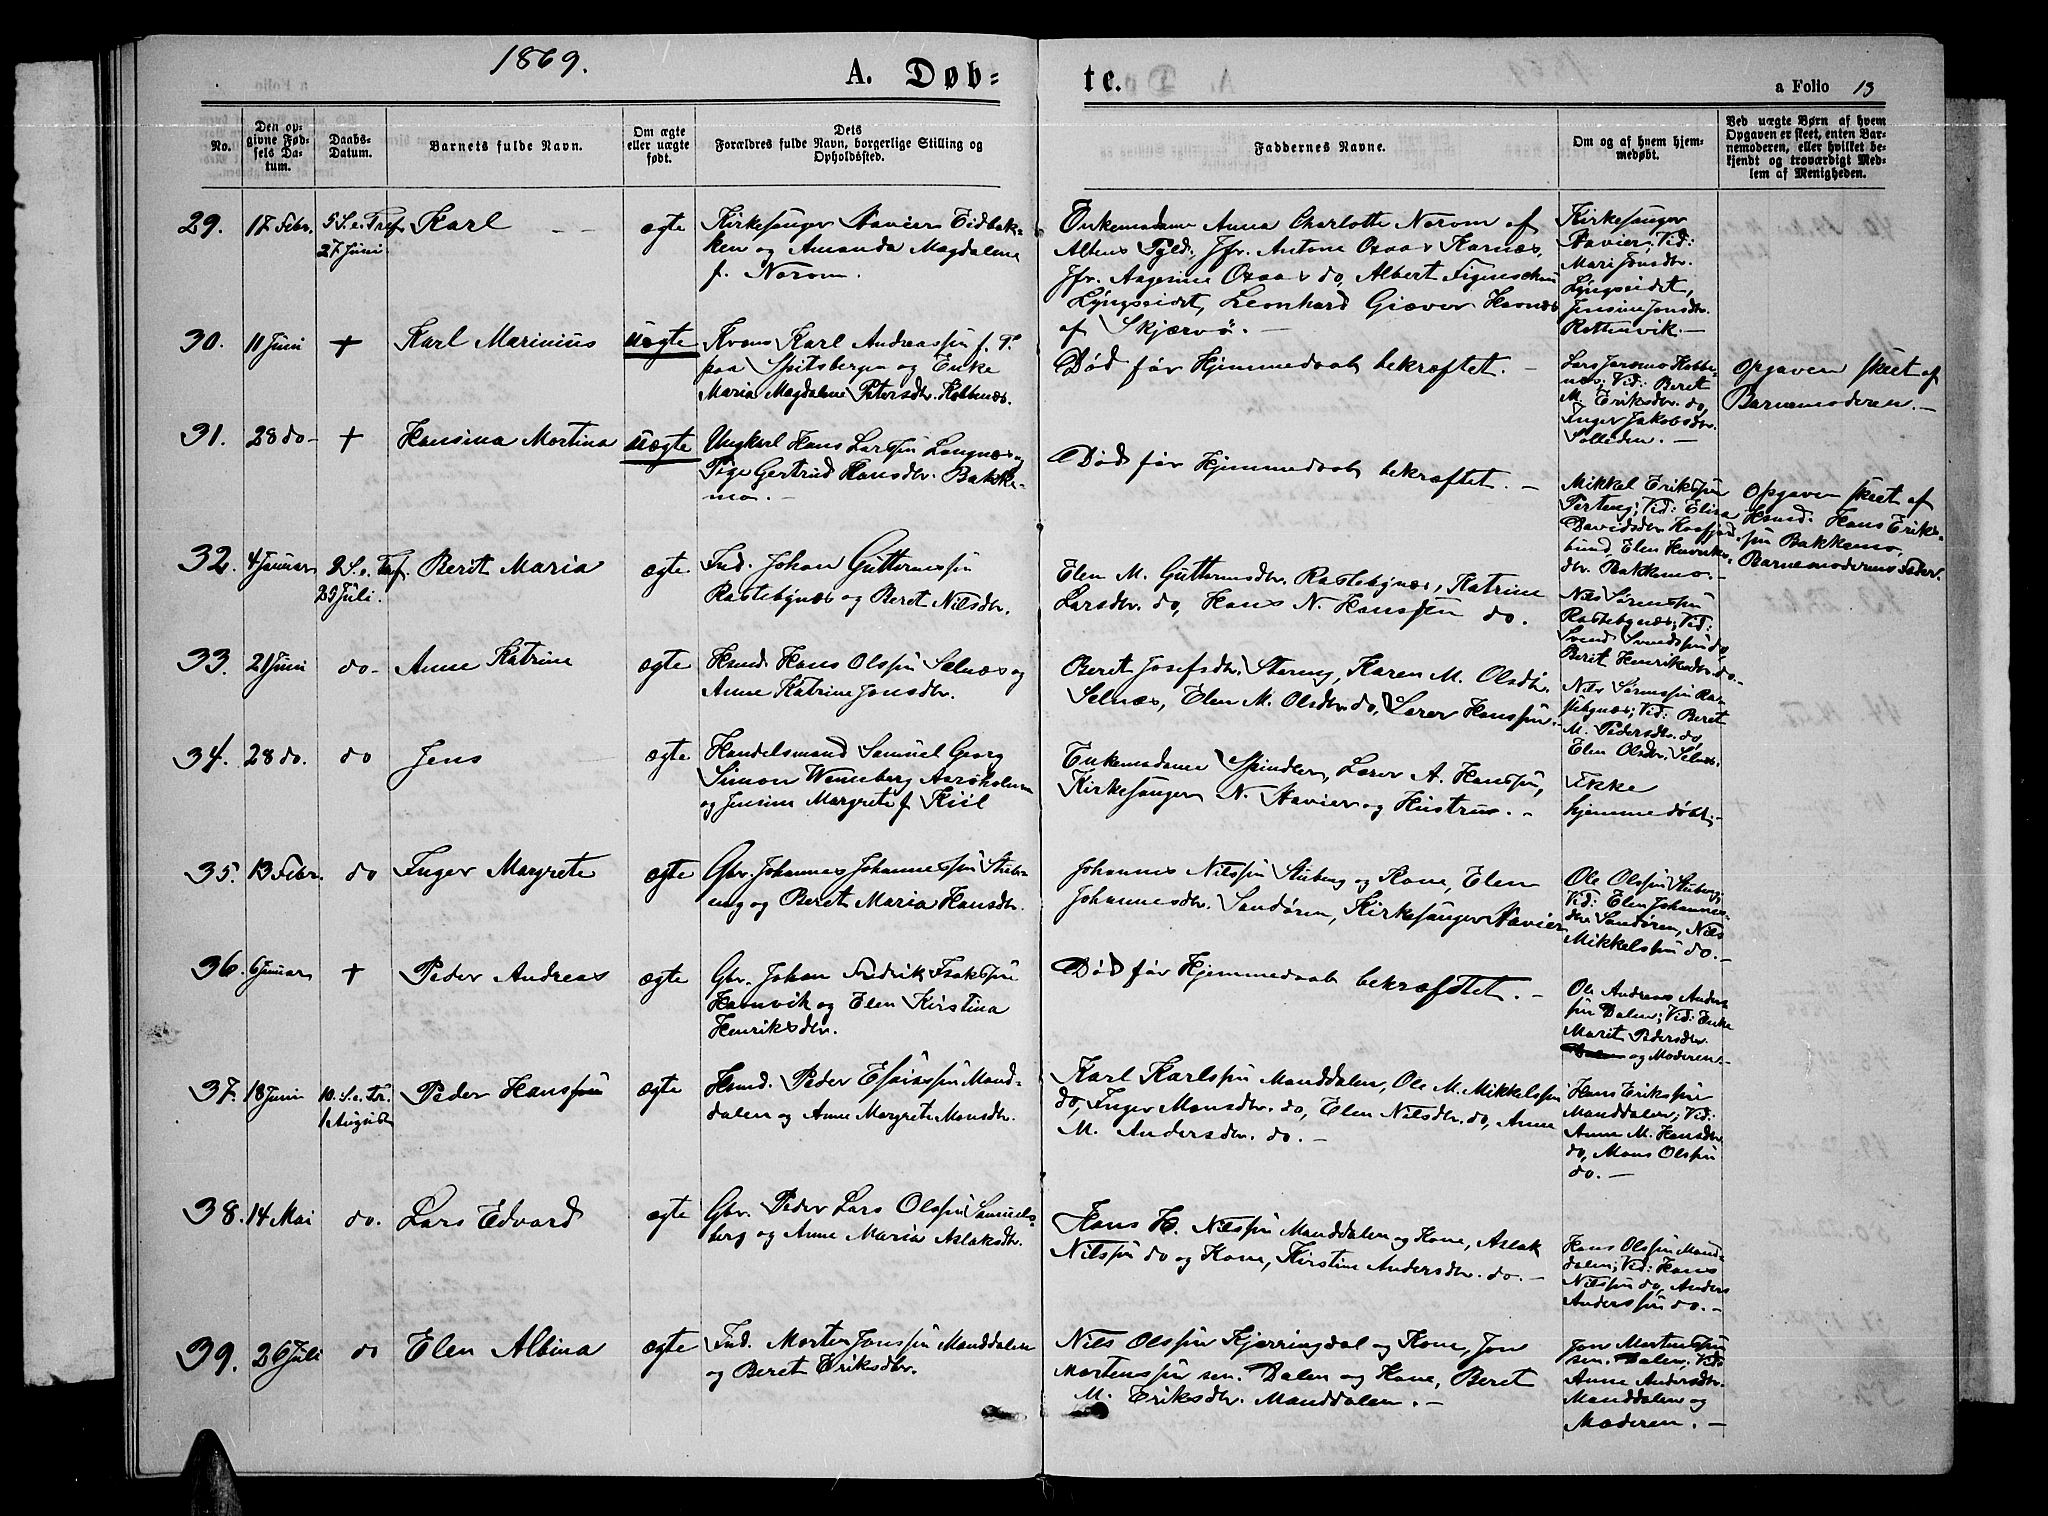 1869.
A. Døb=
te.
a Folio 13
No.
Den op=
givne Fød=
sels Da=
tum.
Daabs=
Datum.
Barnets fulde Navn.
Om ægte
eller uægte
født.
Dets
Forældres fulde Navn, borgerlige Stilling og
Opholdssted.
Faddernes Navne.
Om og af hvem hjem=
medøbt.
Ved uægte Børn af hvem
Opgaven er skeet, enten Bar=
nemoderen, eller hvilket be=
kjendt og troværdigt Med=
lem af Menigheden.
29. 17 Febr. 5 S. e. Tref.
27 Juni.
Karl
ægte
Kirkesanger Xavier Eidbak-
ken og Amanda Magdalene
f. Norom.
Enkemadame Anna Charlotte Norom af
Altens Pgld; Jfr. Antone Karnæs,
Jfr. Aagenine do, Albert Figenschau
Lyngseidet, Leonhard Giæver Havnæs
af Skjærvö. -
Kirkesanger
Xavier; Vid:
Mari Jonsdtr.
Lyngseidet,
Jensine Jonsdtr.
Rottenvik. -
30. 11 Juni +
Karl Marinius
uægte
Kvæns Karl Andreassen f. T.
paa Spitsbergen og Enke
Maria Magdalene Petersdtr. Kobbnæs.
Død før Hjemmedaab bekræftet. -
Lars Kobbe-
næs; Vid: Beret
M. Eriksdtr. do,
Inger Jakobsdtr.
-
Opgaven skeet af
Barnemoderen. -
31. 28 do - +
Hansina Martina
uægte
Ungkarl Hans Larssen Langnæs og
Pige Gertrud Hansdtr. Bakke-
mo. -
Død før Hjemmedaab bekræftet. -
Mikkel Erikssen
Vid: Elisa
Davidsdtr.
Elen Henriks-
dtr. Bakkemo. -
Opgaven skeet af
Hsmd. Hans Eriks-
sen Bakkemo,
Barnemoderens Fader.
32. 4 Januar 9 S. e. Tref.
25 Juli.
Berit Maria
ægte
Ind. Johan Guttormssen
Rastebynæs og Beret Nilsdtr.
Elen M. Guttormsdtr. Rastebynæs, Katrine
Larsdtr. do, Hans N. Hanssen do.
Nils Sörenssen
Rastebynæs; Vid:
Svend Svendssen do,
Berit Henriksdtr. do -
33. 21 Juni do -
Anne Katrine
ægte
Hsmd. Hans Olssen Selnæs og
Anne Katrine Jonsdtr.
Beret Josefsdtr. Karen M. Olsdtr.
Selnæs, Elen M. Olsdtr. do, Lærer Hanssen. -
Nils Sörenssen Ra-
stebynæs; Vid: Beret
M. Pedersdtr. do,
Elen Olsdtr. Selnæs.
34. 28 do. do
Jens
ægte
Handelsmand Samuel Georg
Simon Wenneberg Aaröholmen
og Jensine Margrete f. Kiil
Enkemadame Spindler, Lærer A. Hanssen,
Kirkesanger N. Xavier og Hustrue. -
Ikke
hjemmedöbt. -
35. 13 Febr. do
Inger Margrete
ægte
Gbr. Johannes Johannessen Stuber-
eng og Beret Maria Hansdtr.
Johannes Nilssen og Kone, Elen
Johannesdtr. Sandören, Kirkesanger Xavier
Ole Olssen
Vid: Elen Johannes-
dtr. Sandören, Nils
Mikkelssen do. -
36. 6 Januar +
Peder Andreas
ægte
Gbr. Johan Fredrik Isakssen
Hamvik og Elen Kirstina
Henriksdtr.
Død før Hjemmedaab bekræftet. -
Ole Andreas Anders-
sen Dalen; Vid: Enke
Marit Pedersdtr.
og Moderen. -
37. 18 Juni 10. S. e. Tr.
1 August
Peder Hanssen
ægte
Hsmd. Peder Esaiassen Mand-
dalen og Anne Margrete Monsdtr.
Karl Karlssen Manddalen, Ole M. Mikkelssen
do, Inger Monsdtr. do, Elen Nilsdtr. do, Anne
M. Andersdtr. do. -
Hans Erikssen
Manddalen; Vid:
Anne M. Hansdtr.
do, Mons Olssen
do. -
38. 14 Mai do.
Lars Edvard
ægte
Gbr. Peder Lars Olssen Samuels-
berg og Anne Maria Aslaksdtr.
Hans H. Nilssen Manddalen og Kone, Aslak
Nilssen do og Kone, Kirstine Andersdtr. do. -
Hans Olssen Mand-
dalen; Vid: Hans
Nilssen do, Anders
Anderssen do. -
39. 26 Juli do
Elen Albina
ægte
Ind. Morten Jonssen Manddalen
og Beret Eriksdtr.
Nils Olssen Kjerringdal og Kone, Jon
Mortenssen sen. Dalen og Kone, Beret
M. Eriksdtr. Manddalen. -
Jon Mortenssen
sen. Dalen. Vid:
Anne Andersdtr.
Manddalen og
Moderen. -